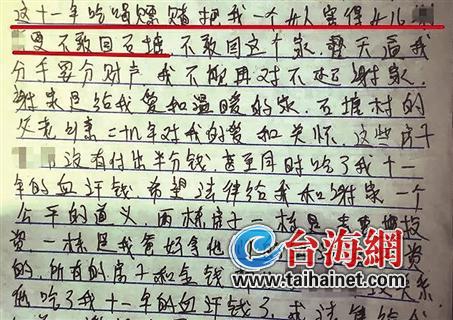 这十一年吃喝赌 把我一个女人害得女儿
不敢回石塘,不敢回这个家,整天逼我
分手要分财产,我不能再对不起谢家,
谢家是给我爱和温暖的家,石塘村的
父老 二十九年对我的爱和关怀,这些房子
没有付出半分钱 甚至同时吃了我十一
年的血汗钱,希望法律给我和谢家一个
公平的道义 两栋房子一栋是 投
资 一栋是我 资
的,所有的房子和金钱 关系
他吃了我十一年的血汗钱了,求法律给
台海網
www.taihainet.com